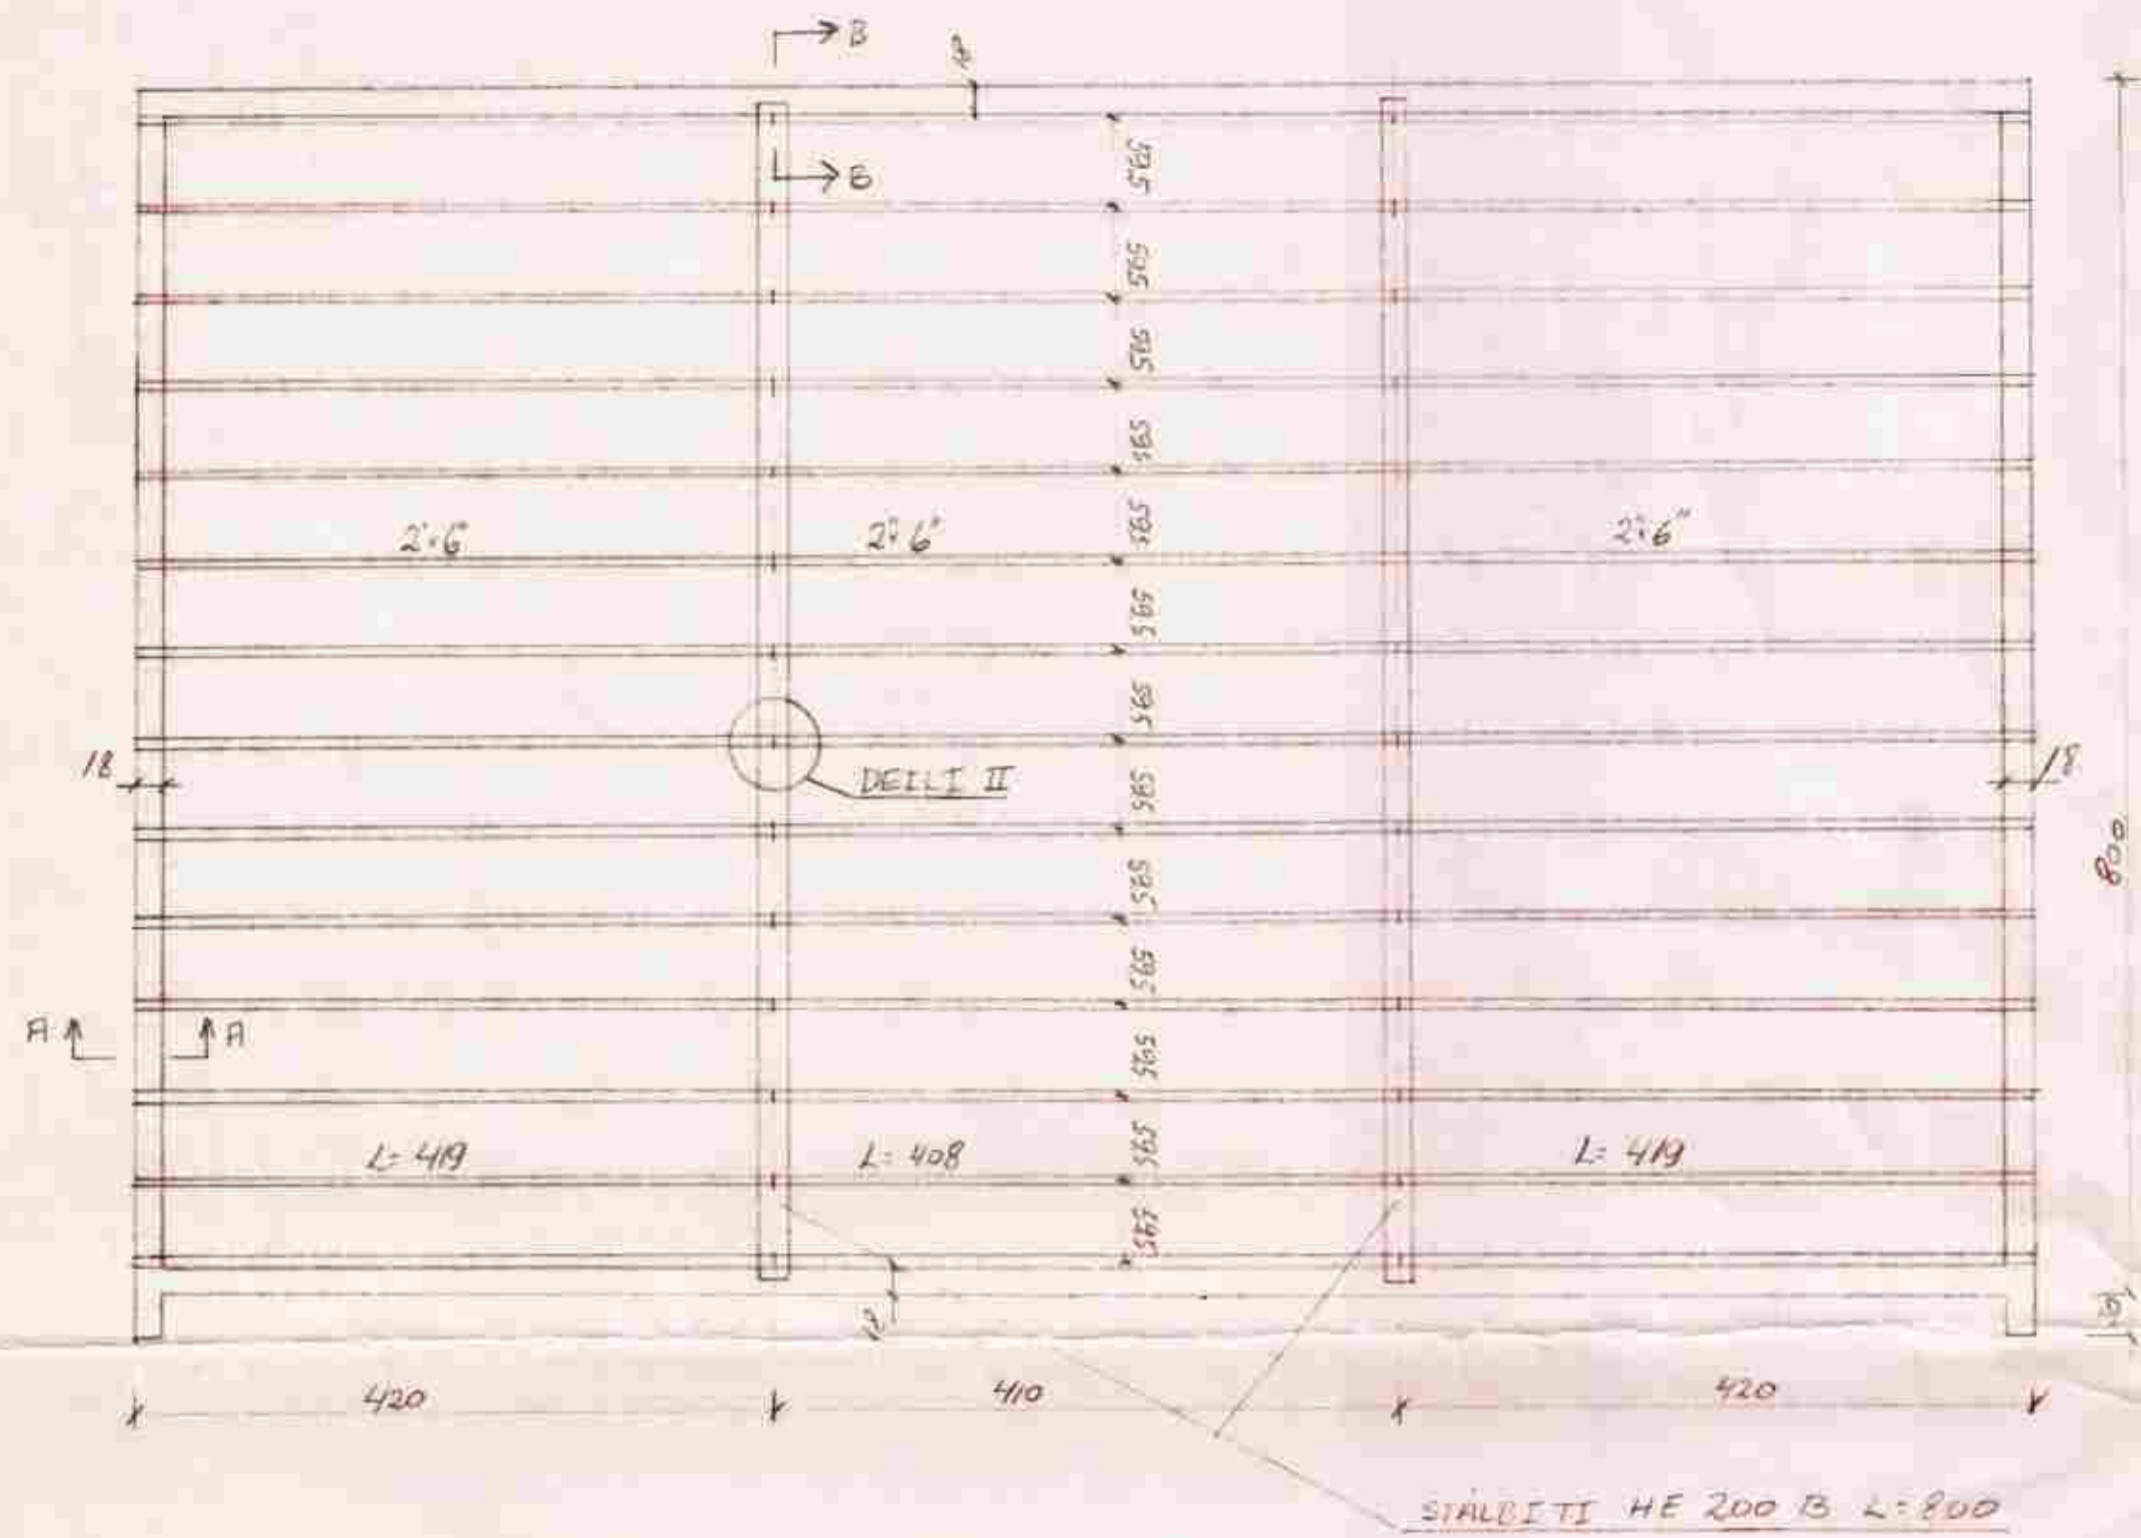 B
18
B
59.5
59.5
59.5
59.5
59.5
59.5
59.5
59.5
59.5
59.5
59.5
59.5
2"·6"
2"·6"
2"·6"
18
DEILI II
18
800
A
A
L= 419
L= 408
L= 419
18
420
410
420
STÁLBITI HE 200 B L=800